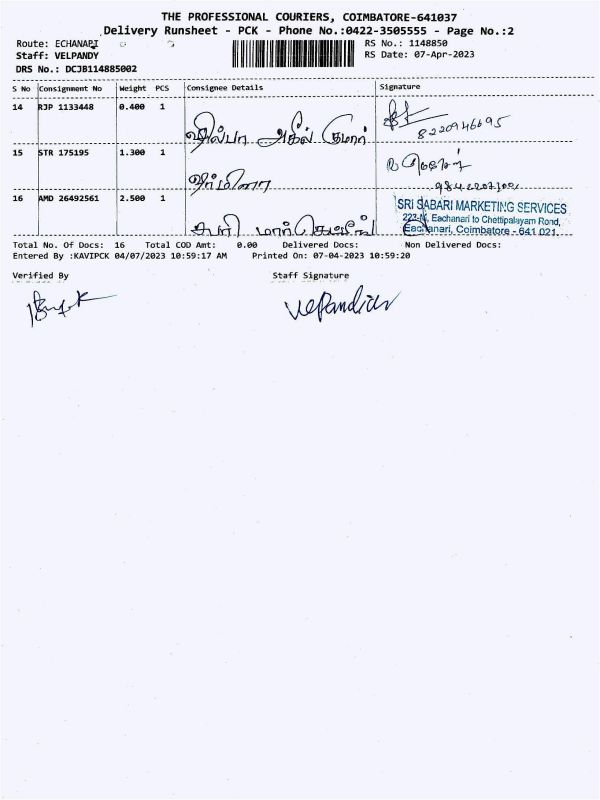 THE PROFESSIONAL COURIERS, COIMBATORE-641037
Delivery Runsheet - PCK - Phone No.:0422-3505555 - Page No.:2
Route: ECHANARI
RS No.: 1148850
Staff: VELPANDY
RS Date: 07-Apr-2023
DRS No.: DCJB114885002
S No Consignment No Weight PCS Consignee Details Signature
14 RJP 1133448 0.400 1
ஷில்பா அகில் குமார்
8220946695
15 STR 175195 1.300 1
ஷர்மிளா
16 AMD 26492561 2.500 1
சபரி மார்கெட்டிங்
SRI SABARI MARKETING SERVICES
Eachanari to Chettipalayam Road,
Eachanari, Coimbatore - 641 021.
Total No. Of Docs: 16 Total COD Amt: 0.00 Delivered Docs: Non Delivered Docs:
Entered By :KAVIPCK 04/07/2023 10:59:17 AM Printed On: 07-04-2023 10:59:20
Verified By Staff Signature
velPandian